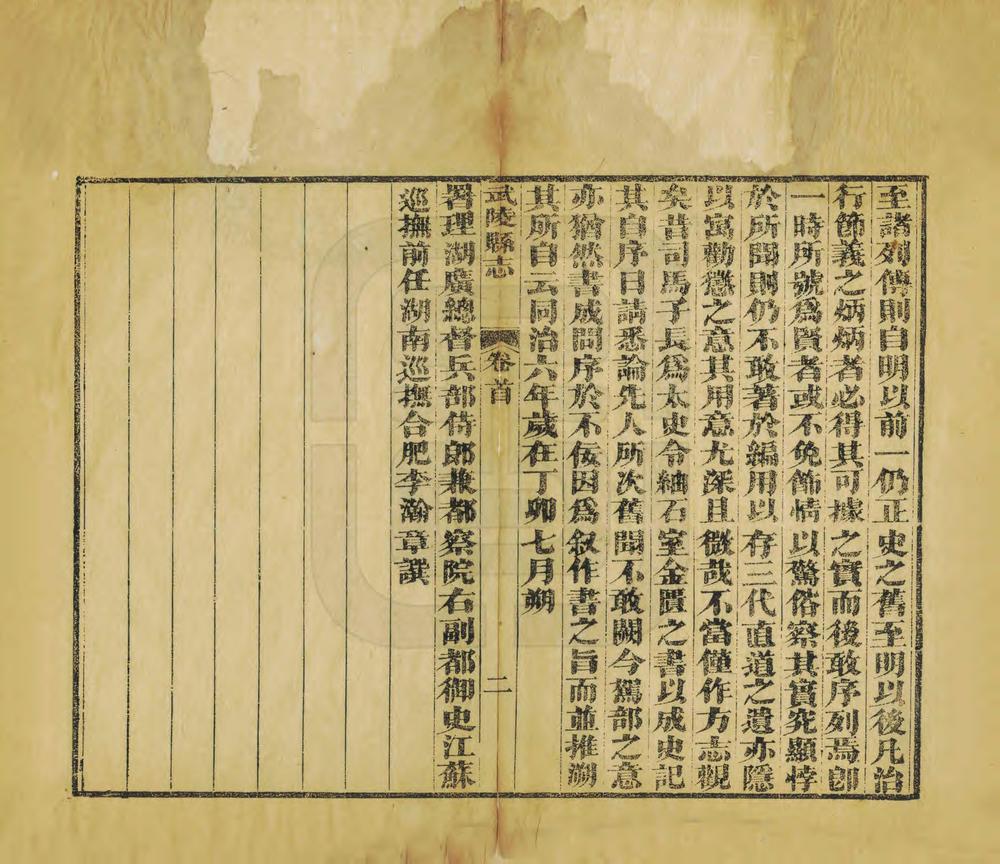 至諸列傳則自明以前一仍正史之舊至明以後凡治
行節義之炳炳者必得其可據之實而後敢序列焉卽
一時所號爲賢者或不免飾情以驚俗察其實究顯悖
於所聞則仍不敢著於編用以存三代直道之遺亦隱
以寓勸懲之意其用意尤深且微哉不當僅作方志觀
矣昔司馬子長爲太史令紬石室金匱之書以成史記
其自序曰請悉論先人所次舊聞不敢闕今駕部之意
亦猶然書成問序於不佞因爲叙作書之旨而並推溯
其所自云同治六年歲在丁卯七月朔
武陵縣志
卷首
二
署理湖廣總督兵部侍郎兼都察院右副都御史江蘇
巡撫前任湖南巡撫合肥李瀚章譔